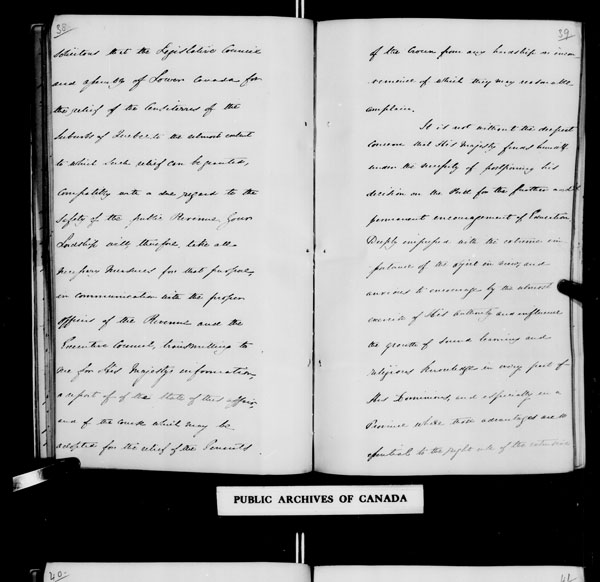 38
solicitous that the Legislative Council
and Assembly of Lower Canada for
the relief of the Censitaires of the
Suburbs of Quebec to the utmost extent
to which such relief can be granted,
compatibly with a due regard to the
safety of the public Revenue. Your
Lordship will therefore take all
necessary measures for that purpose,
in communication with the proper
officers of the Revenue and the
Executive Council, transmitting to
me for His Majesty's information,
a report of the state of this affair,
and of the course which may be
adopted for the relief of the Tenants
39
of the Crown from any hardship or incon-
venience of which they may reasonably
complain.
It is not without the deepest
concern that His Majesty finds himself
under the necessity of postponing his
decision on the Bill for the further and
permanent encouragement of Education
Deeply impressed with the extreme im-
portance of the object in view, and
anxious to encourage by the utmost
exercise of His authority and influence
the growth of sound learning and
religious knowledge in every part of
His Dominions, and especially in a
Province where those advantages are so
essential to the right use of the extensive
PUBLIC ARCHIVES OF CANADA
40
41